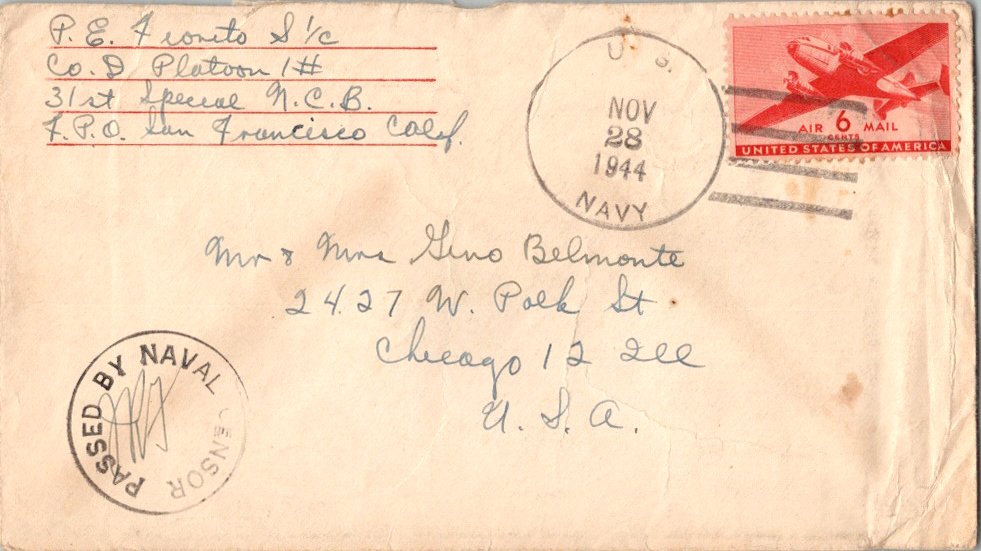 P. E. Fionito S 1/c
Co. D Platoon 1#
31st Special N.C.B.
F.P.O. San Francisco Calif.
U. S.
NOV
28
1944
NAVY
AIR 6 MAIL
CENTS
UNITED STATES OF AMERICA
Mr & Mrs Gino Belmonte
2427 W. Polk St
Chicago 12 Ill
U. S. A.
PASSED BY NAVAL CENSOR